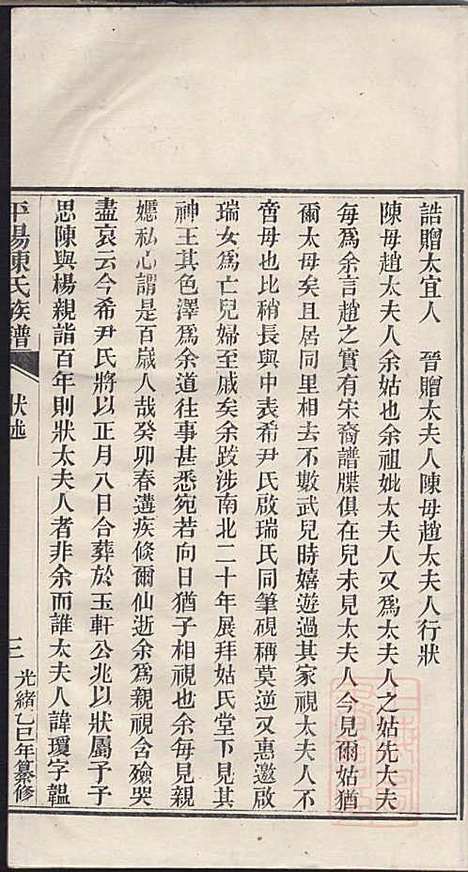 誥贈太宜人　晉贈太夫人陳母趙太夫人行狀
陳母趙太夫人余姑也余祖妣太夫人又爲太夫人之姑先大夫
每爲余言趙之實有宋裔譜牒俱在兒未見太夫人今見爾姑猶
爾太母矣且居同里相去不數武兒時嬉遊過其家視太夫人不
啻母也比稍長與中表希尹氏啟瑞氏同筆硯稱莫逆又惠邀啟
瑞女爲亡兒婦至戚矣余跋涉南北二十年展拜姑氏堂下見其
神王其色澤爲余道往事甚悉宛若向日猶子相視也余每見親
嬺私心謂是百歲人哉癸卯春遘疾倏爾仙逝余爲親視含殮哭
盡哀云今希尹氏將以正月八日合葬於玉軒公兆以狀屬予予
思陳與楊親誼百年則狀太夫人者非余而誰太夫人諱瓊字韞
平陽陳氏族譜
狀述
三
光緒乙巳年纂修